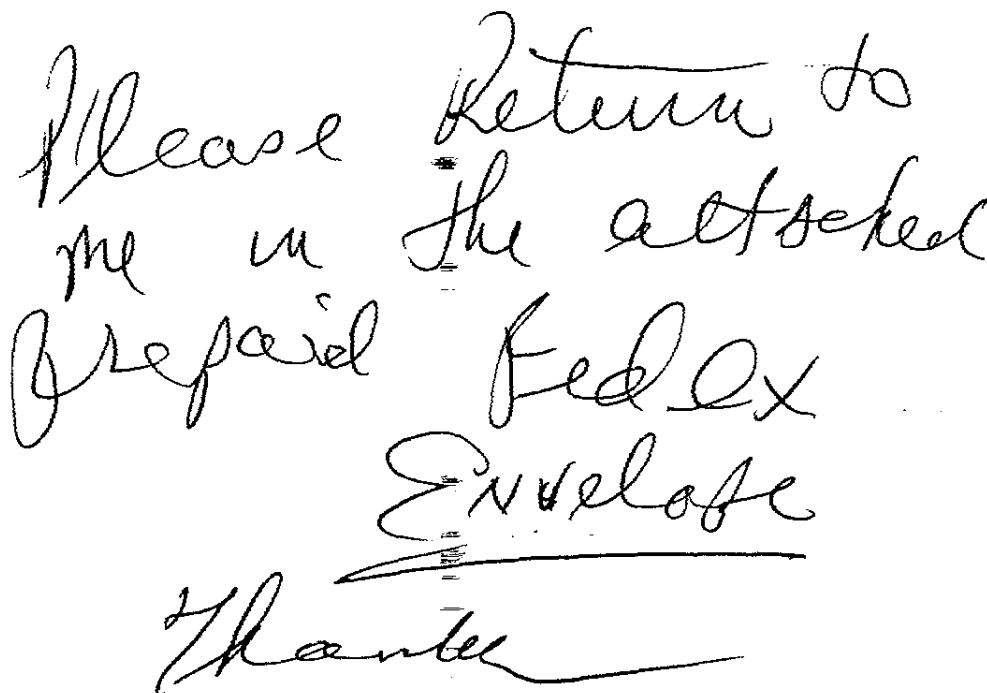 Please Return to
me in the attached
prepaid Fed ex
Envelope
Thanks